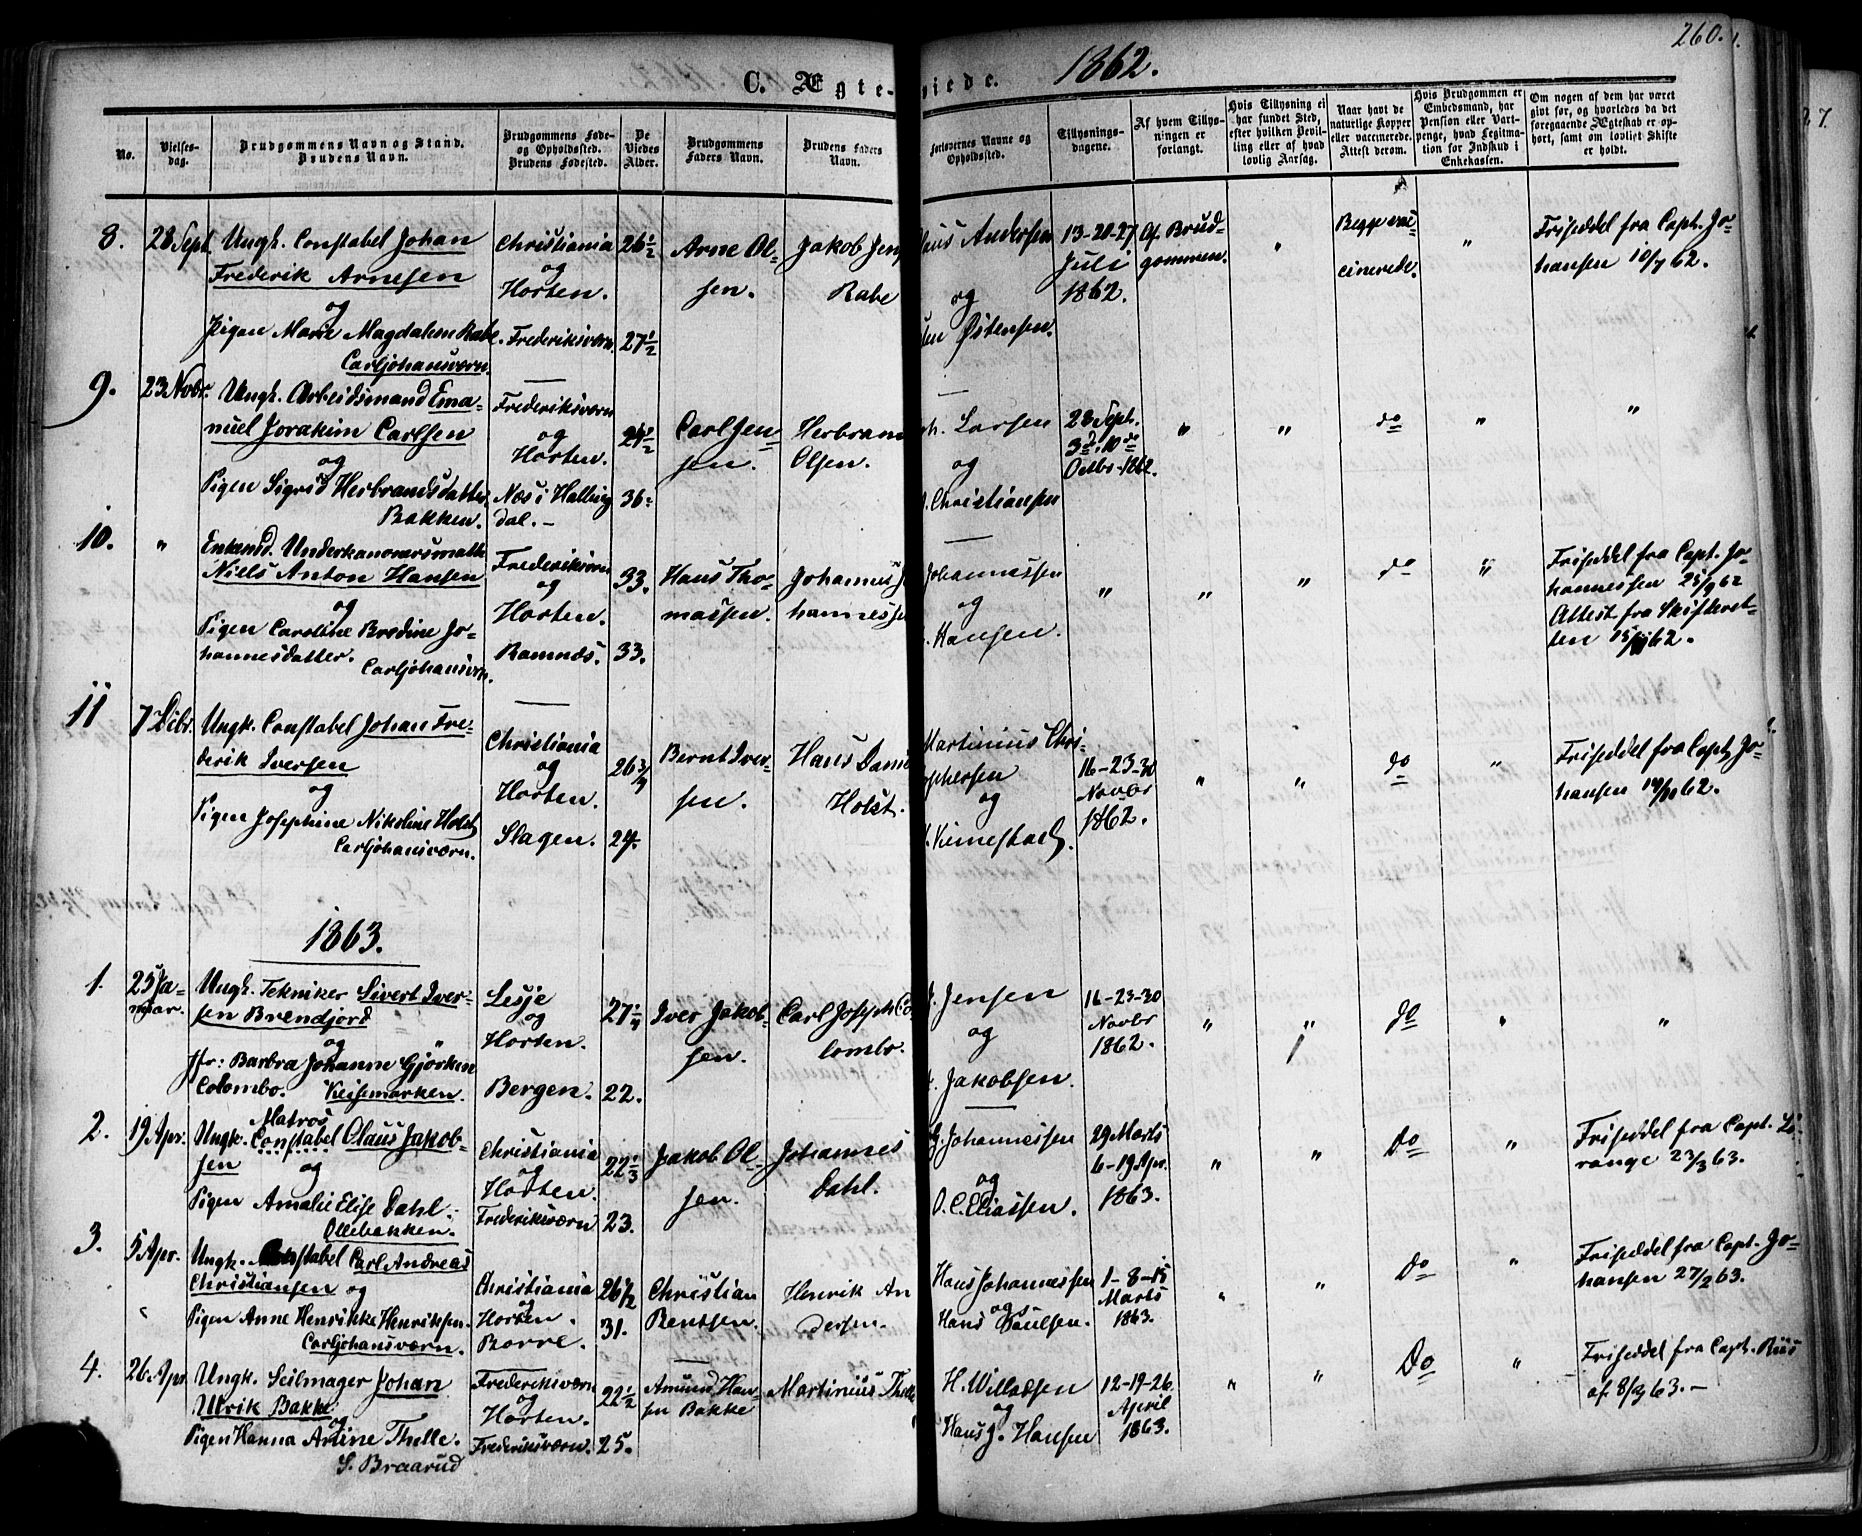 260.
1862.
C. Ægte-
viede.
No.
Vielses-
dag.
Brudgommens Navn og Stand.
Brudens Navn.
Brudgommens Føde-
og Opholdssted.
Brudens Fødested.
De
Viedes
Alder.
Brudgommens
Faders Navn.
Brudens Faders
Navn.
Forlovernes Navne og
Opholdssted.
Tillysnings-
dagene.
Af hvem Tillys-
ningen er
forlangt.
Hvis Tillysning ei
har fundet Sted,
efter hvilken Bevil-
ling eller af hvad
lovlig Aarsag.
Naar havt de
naturlige Kopper
eller vaccinerede.
Attest derom.
Hvis Brudgommen er
Embedsmand, har
Pension eller Vart-
penge, hvad Legitima-
tion for Indskud i
Enkekassen.
Om nogen af dem har været
givt før, og hvorledes da det
foregaaende Ægteskab er op-
hørt, samt om lovligt Skifte
er holdt.
8. 28 Sept. Ungk. Constabel Johan
Frederik Arnesen
og
Pigen Marie Magdalene Rabe.
Carljohansværn.
Christiania
og
Horten.
Frederiksværn.
26 1/2
27 1/2
Arne Ol-
sen.
Jakob Jens
Rabe
laus Andersen
og
Østensen.
13-20-27
Juli
1862.
Af Brud-
gommen.
"
Begge vac-
cinerede.
"
Friseddel fra Capt. Jo-
hansen 10/7 62.
9. 23 Novbr. Ungk. Arbeidsmand Ema-
nuel Jorakim Carlsen
og
Pigen Sigrid Herbrandsdatter
Bakken.
Frederiksværn
og
Horten.
Næs i Halling
dal. -
36.
Carl Jen-
sen.
Herbran
Olsen.
Larsen
og
Christiansen
28 Sept.
3d. 10de
Octbr. 1862.
"
"
do
"
"
10. " Enkemd. Underkanoneersmath
Niels Anton Hansen
og
Pigen Caroline Bredine Jo-
hannesdatter.
Carljohansværn.
Frederiksværn
og
Horten.
Ramnæs.
33.
33.
Hans Tho-
massen.
Johannes Jo
hannessen
Johannessen
og
Hansen.
"
"
"
do
"
Friseddel fra Capt. Jo-
hannessen 25/9 62
Attest fra Skifteret-
ten 62.
11 7 Decbr. Ungk. Constabel Johan Fre-
derik Iversen
og
Pigen Josephine Nikoline Holst
Carljohansværn.
Christiania
og
Horten.
Slagen.
26 3/4
24.
Bernt Iver-
sen.
Hans Danie
Holst.
Martinius Chri-
stophersen
og
16-23-30
Novbr
1862.
"
"
do
"
Friseddel fra Capt. Jo-
hansen 62.
1863.
1. 25 Ja-
nuar.
Ungk. Tekniker Sivert Iver-
sen Brendjord
og
Jfr: Barbra Johanne Gjørken
Colombo. Keisemarken.
Lesje
og
Horten.
Bergen.
27 1/4
22.
Iver Jakob-
sen.
Carl Joseph Co
lombo.
Jensen
og
Jakobsen.
16-23-30
Novbr
1862.
"
"
do
"
"
2. 19 Apr. Ungk. Matros
Constabel Olaus Jakob-
sen og
Pigen Amalie Elise Dahl.
Ollebakken.
Christiania
og
Horten.
Frederiksværn
22 1/3
23.
Jakob Ol-
sen.
Johannes
Dahl.
G. Johannessen
og
O. C. Eliassen.
29 Marts
6-19 Apr.
1863.
"
"
Do
"
Friseddel fra Capt. Lo-
range 23/3 63.
3. 5 Apr. Ungk. Constabel Carl Andreas
Christiansen og
Pigen Anne Henrikke Henriksen.
Carljohansværn.
Christiania
og
Horten.
Borre.
26 1/2
31.
Christian
Bentsen.
Henrik An
dersen.
Hans Johannessen
og
Hans Paulsen.
1-8-15
Marts
1863.
"
"
Do
"
Friseddel fra Capt. Jo-
hansen 27/2 63.
4. 26 Apr Ungk. Seilmager Johan
Ulrik Bakke
og
Pigen Hanna Amine Thelle.
S. Braarud
Frederiksværn
og
Horten.
Frederiksværn.
22 1/2
25.
Amund Han-
sen Bakke
Martinius Thelle
H. Willadsen
og
Hans J. Hansen
12-19-26
April
1863.
"
"
Do
"
Friseddel fra Capt. Riis
af 8/3 63. -